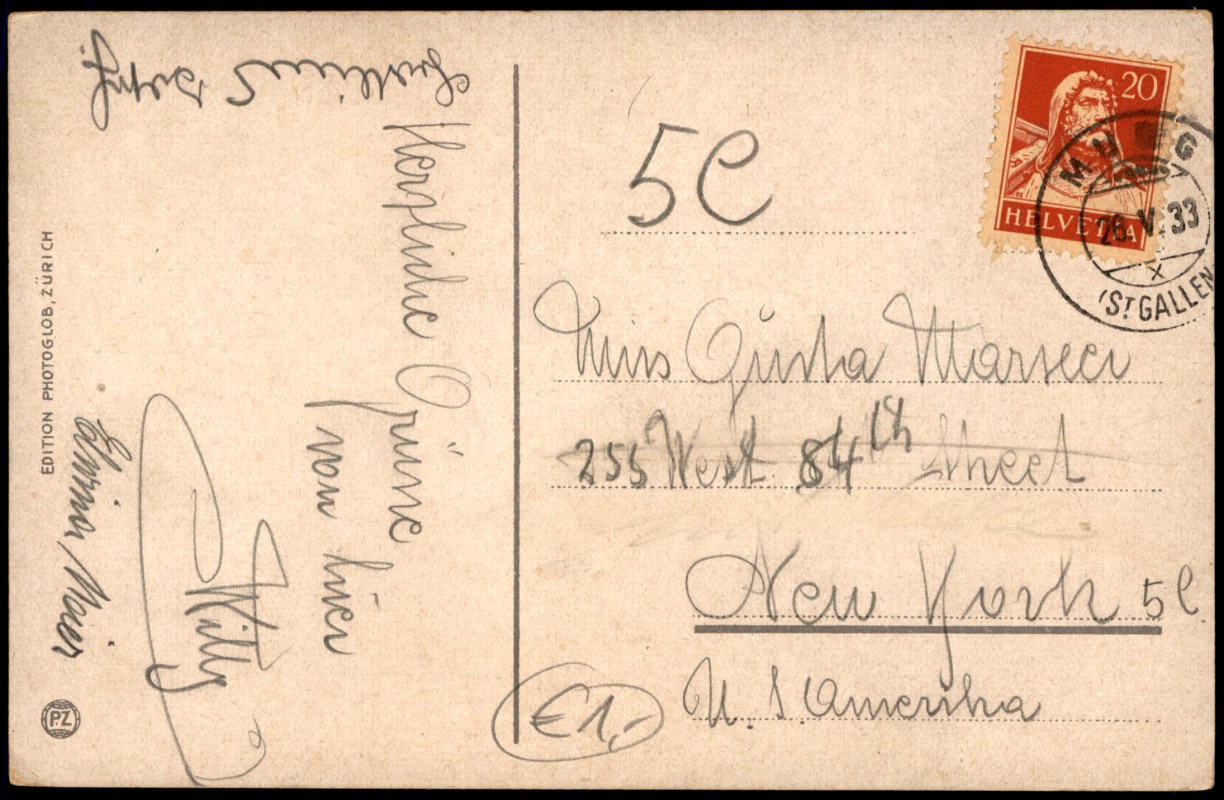 Herzliche Grüsse
von hier
Willy
Elwina Maier
EDITION PHOTOGLOB, ZÜRICH
P.Z
5C
20
HELVETIA
26.V.33
(ST GALLEN
Miss Gusta
255 West 84th Street
New York 5C
U. S. Amerika
€1,-